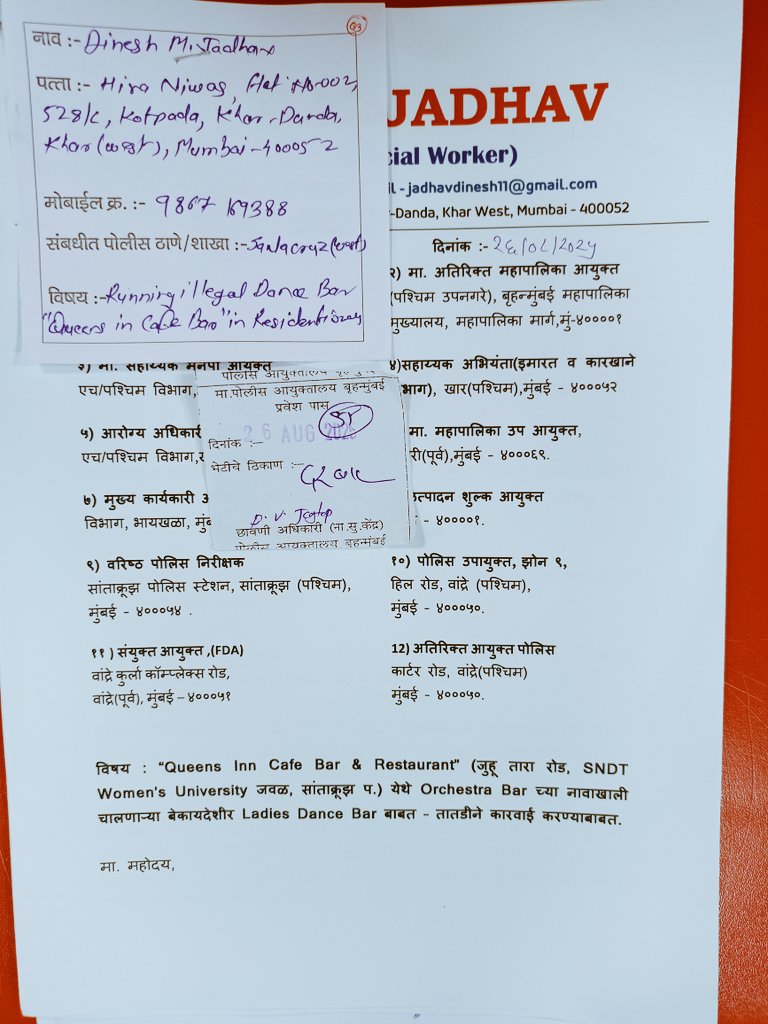 नाव :- Dinesh M. Jadhav
पत्ता :- Hira Niwas, Flat No-002,
528/C, Kotpada, Khar-Danda,
Khar (west), Mumbai-400052
मोबाईल क्र. :- 9867169388
संबधीत पोलीस ठाणे/शाखा :- Santacruz (west)
विषय :- Running illegal Dance Bar
"Queens in Cafe Bar" in Residential
JADHAV
cial Worker)
l - jadhavdinesh11@gmail.com
-Danda, Khar West, Mumbai - 400052
दिनांक :-
२) मा. अतिरिक्त महापालिका आयुक्त
(पश्चिम उपनगरे), बृहन्मुंबई महापालिका
मुख्यालय, महापालिका मार्ग,मुं-४००००१
३) मा. सहाय्यक मनपा आयुक्त
एच/पश्चिम विभाग,
४)सहाय्यक अभियंता(इमारत व कारखाने
भाग), खार(पश्चिम),मुंबई - ४०००५२
पोलीस आयुक्तालय बृहन्मुंबई
मा.पोलीस आयुक्तालय बृहन्मुंबई
प्रवेश पास
26 AUG 2025
दिनांक :-
भेटीचे ठिकाण :-
छावणी अधिकारी (ना.सु.केंद्र)
पोलीस आयुक्तालय बृहन्मुंबई
५) आरोग्य अधिकारी
एच/पश्चिम विभाग,
मा. महापालिका उप आयुक्त,
री(पूर्व),मुंबई - ४०००६९.
७) मुख्य कार्यकारी अ
विभाग, भायखळा, मुंब
त्पादन शुल्क आयुक्त
- ४००००१.
९) वरिष्ठ पोलिस निरीक्षक
सांताक्रूझ पोलिस स्टेशन, सांताक्रूझ (पश्चिम),
मुंबई - ४०००५४ .
१०) पोलिस उपायुक्त, झोन ९,
हिल रोड, वांद्रे (पश्चिम),
मुंबई - ४०००५०.
११ ) संयुक्त आयुक्त ,(FDA)
वांद्रे कुर्ला कॉम्प्लेक्स रोड,
वांद्रे(पूर्व), मुंबई – ४०००५१
12) अतिरिक्त आयुक्त पोलिस
कार्टर रोड, वांद्रे(पश्चिम)
मुंबई - ४०००५०.
विषय : "Queens Inn Cafe Bar & Restaurant" (जुहू तारा रोड, SNDT
Women's University जवळ, सांताक्रूझ प.) येथे Orchestra Bar च्या नावाखाली
चालणाऱ्या बेकायदेशीर Ladies Dance Bar बाबत – तातडीने कारवाई करण्याबाबत.
मा. महोदय,